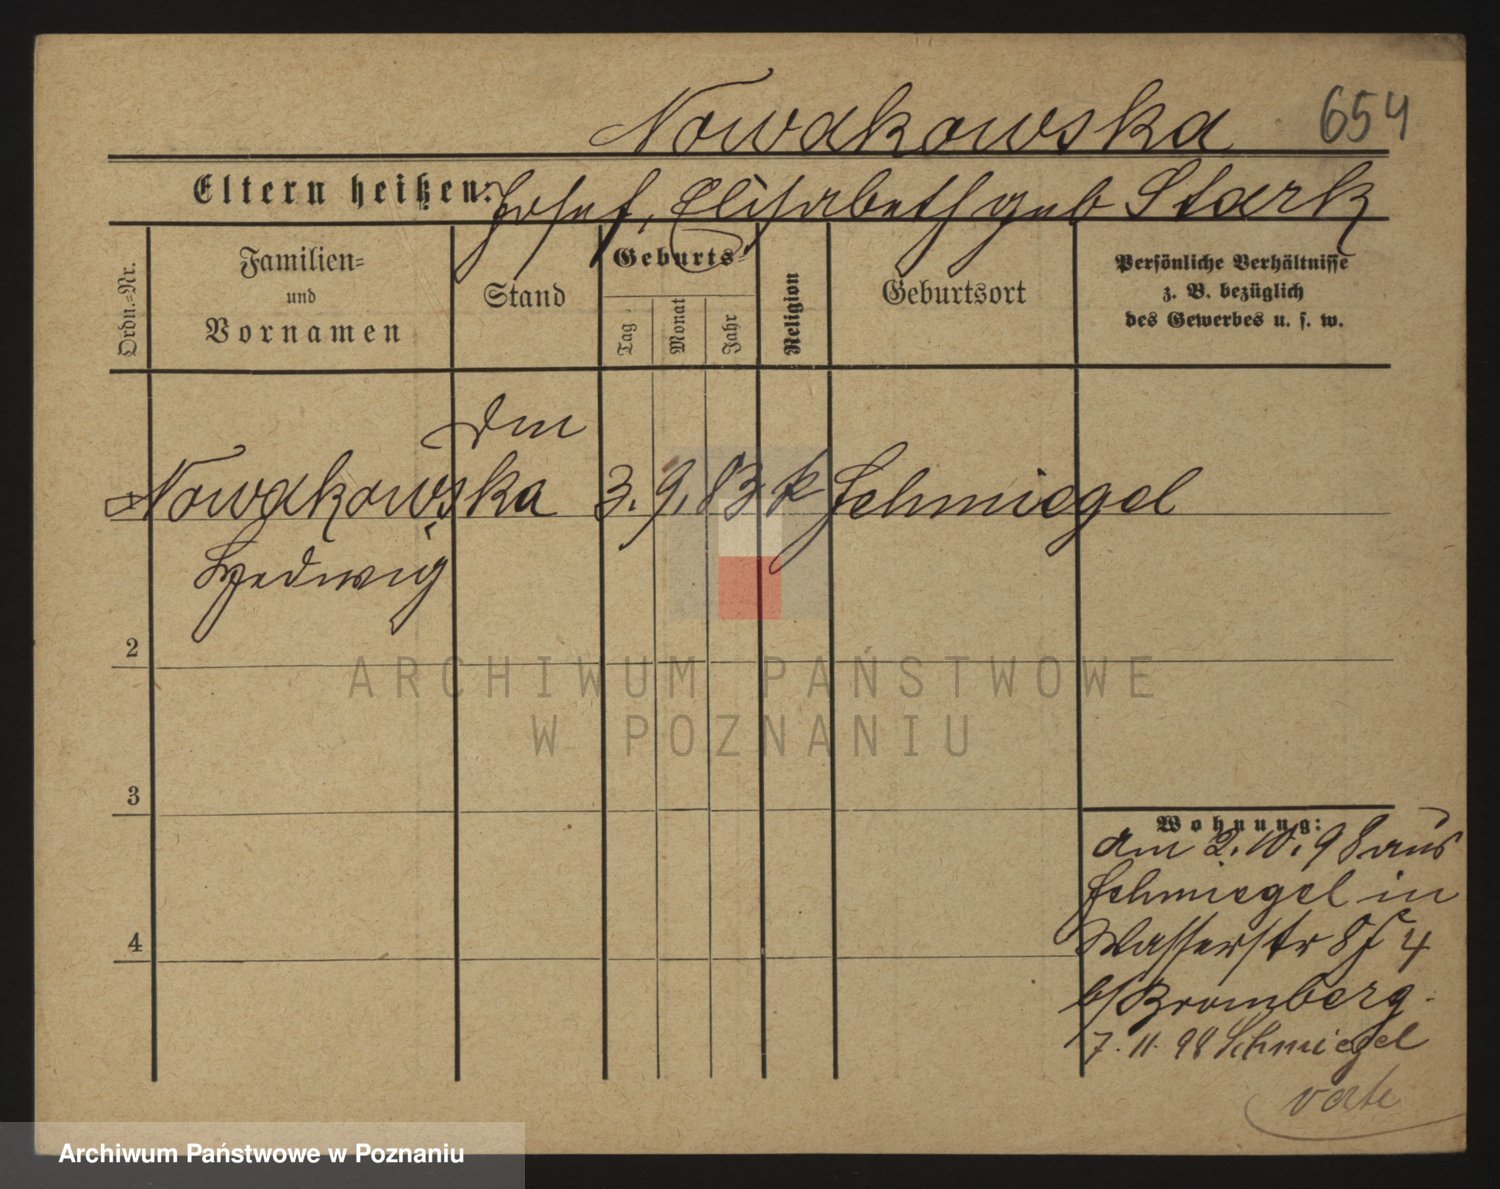 Nowakowska 654
Eltern heißen: Josef, Elisabeth geb Stark
Ordn.=Nr.
Familien=
und
Vornamen
Stand
Geburts=
Tag
Monat
Jahr
Religion
Geburtsort
Persönliche Verhältnisse
z. B. bezüglich
des Gewerbes u. s. w.
Nowakowska 3. 9. 83 k Schmiegel
Hedwig
2
3
4
Wohnung:
am 2. 10. 98 aus
Schmiegel in
Wasserstr 8/ 4
b/ Bromberg.
7. 11. 98 Schmiegel
ARCHIWUM PAŃSTWOWE
W POZNANIU
Archiwum Państwowe w Poznaniu